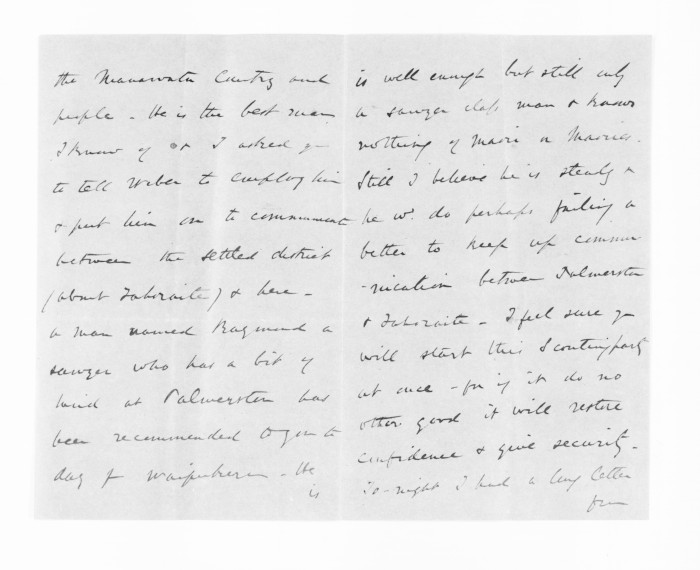 the Manawatu Country and
people - He is the best man
I know of & I asked you
to tell Weber to employ him
& put him on to communicate
between the settled district
(about Tahoraite) & here -
a man named Raymond a
sawyer who has a bit of
land at Palmerston has
been recommended to you to
day of Waipukura - He
is
is well enough but still only
a sawyer class man & knows
nothing of Maori or Maories.
Still I believe he is steady &
he wd. do perhaps failing a
better to keep up commu
-nication between Palmerston
& Tahoraite - I feel sure you
will start this Scouting party
at once - for if it do no
other good it will restore
confidence & give security -
To-night I had a long letter
from